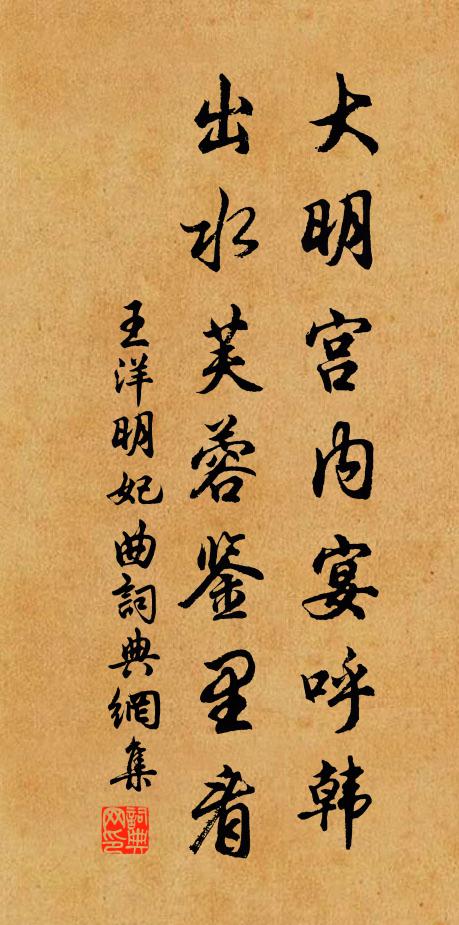 大明宫内宴呼韩
出水芙蓉鉴里看
王洋明妃曲詞典網集
詞典网印